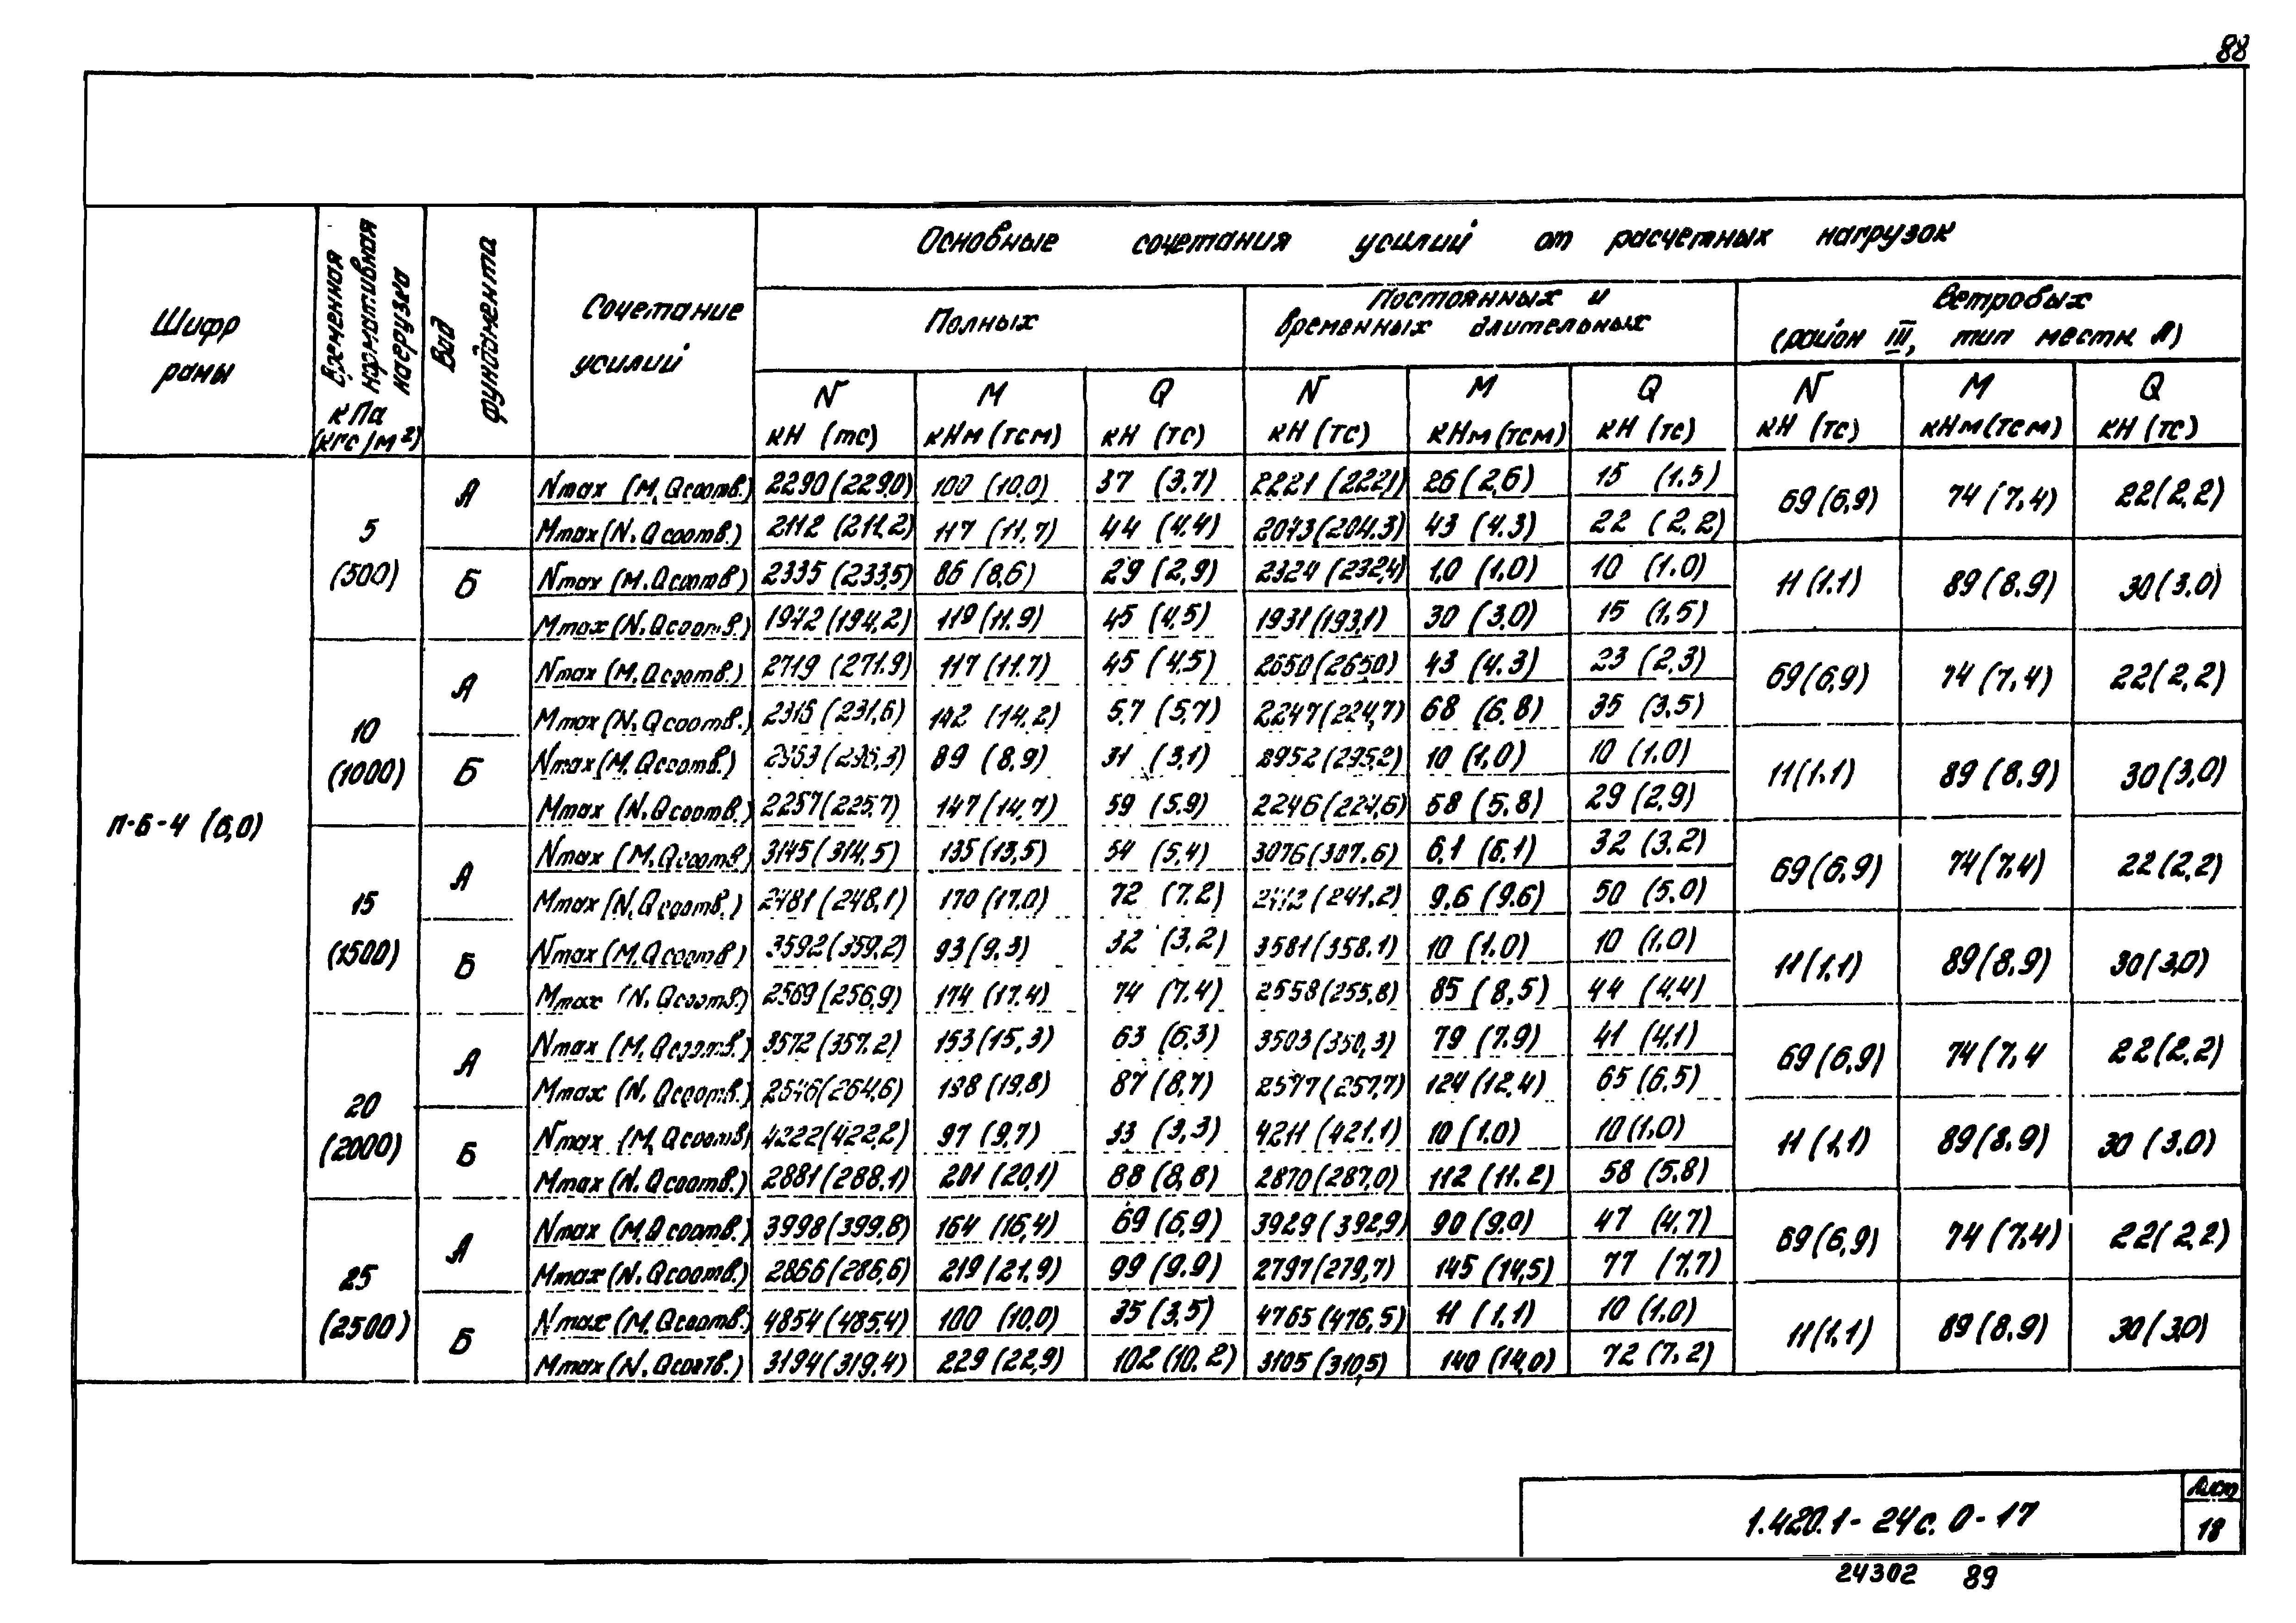 88
Шифр рамы
Временная нормативная нагрузка кПа (кгс/м²)
Вид фундамента
Сочетание усилий
Основные сочетания усилий от расчетных нагрузок
Полных
Постоянных и временных длительных
Ветровых (район III, тип местн А)
N кН (тс)
M кНм (тсм)
Q кН (тс)
N кН (тс)
M кНм (тсм)
Q кН (тс)
N кН (тс)
M кНм (тсм)
Q кН (тс)
П-6-4 (6,0)
5 (500)
А
Nmax (M, Q соотв.) 2290 (229,0) 100 (10,0) 37 (3,7) 2221 (222,1) 26 (2,6) 15 (1,5) 69 (6,9) 74 (7,4) 22 (2,2)
Mmax (N, Q соотв.) 2112 (211,2) 117 (11,7) 44 (4,4) 2043 (204,3) 43 (4,3) 22 (2,2)
Б
Nmax (M, Q соотв) 2335 (233,5) 86 (8,6) 29 (2,9) 2324 (232,4) 1,0 (1,0) 10 (1,0) 11 (1,1) 89 (8,9) 30 (3,0)
Mmax (N, Q соотв.) 1942 (194,2) 119 (11,9) 45 (4,5) 1931 (193,1) 30 (3,0) 15 (1,5)
10 (1000)
А
Nmax (M, Q соотв.) 2719 (271,9) 117 (11,7) 45 (4,5) 2650 (2650) 43 (4,3) 23 (2,3) 69 (6,9) 74 (7,4) 22 (2,2)
Mmax (N, Q соотв.) 2316 (231,6) 142 (14,2) 5,7 (5,7) 2247 (224,7) 68 (6,8) 35 (3,5)
Б
Nmax (M, Q соотв.) 2963 (296,3) 89 (8,9) 31 (3,1) 2952 (295,2) 10 (1,0) 10 (1,0) 11 (1,1) 89 (8,9) 30 (3,0)
Mmax (N, Q соотв.) 2257 (225,7) 147 (14,7) 59 (5,9) 2246 (224,6) 58 (5,8) 29 (2,9)
15 (1500)
А
Nmax (M, Q соотв) 3145 (314,5) 135 (13,5) 54 (5,4) 3076 (307,6) 6,1 (6,1) 32 (3,2) 69 (6,9) 74 (7,4) 22 (2,2)
Mmax (N, Q соотв.) 2481 (248,1) 170 (17,0) 72 (7,2) 2412 (241,2) 9,6 (9,6) 50 (5,0)
Б
Nmax (M, Q соотв) 3592 (359,2) 93 (9,3) 32 (3,2) 3581 (358,1) 10 (1,0) 10 (1,0) 11 (1,1) 89 (8,9) 30 (3,0)
Mmax (N, Q соотв.) 2569 (256,9) 174 (17,4) 74 (7,4) 2558 (255,8) 85 (8,5) 44 (4,4)
20 (2000)
А
Nmax (M, Q соотв.) 3572 (357,2) 153 (15,3) 63 (6,3) 3503 (350,3) 79 (7,9) 41 (4,1) 69 (6,9) 74 (7,4 22 (2,2)
Mmax (N, Q соотв.) 2646 (264,6) 198 (19,8) 87 (8,7) 2577 (257,7) 124 (12,4) 65 (6,5)
Б
Nmax (M, Q соотв) 4222 (422,2) 97 (9,7) 33 (3,3) 4211 (421,1) 10 (1,0) 10 (1,0) 11 (1,1) 89 (8,9) 30 (3,0)
Mmax (N, Q соотв.) 2881 (288,1) 201 (20,1) 88 (8,8) 2870 (287,0) 112 (11,2) 58 (5,8)
25 (2500)
А
Nmax (M, Q соотв.) 3998 (399,8) 164 (16,4) 69 (6,9) 3929 (392,9) 90 (9,0) 47 (4,7) 69 (6,9) 74 (7,4) 22 (2,2)
Mmax (N, Q соотв.) 2866 (286,6) 219 (21,9) 99 (9,9) 2797 (279,7) 145 (14,5) 77 (7,7)
Б
Nmax (M, Q соотв.) 4854 (485,4) 100 (10,0) 35 (3,5) 4765 (476,5) 11 (1,1) 10 (1,0) 11 (1,1) 89 (8,9) 30 (3,0)
Mmax (N, Q соотв.) 3194 (319,4) 229 (22,9) 102 (10,2) 3105 (310,5) 140 (14,0) 72 (7,2)
1.420.1-24с. 0-17
Лист
18
24302 89